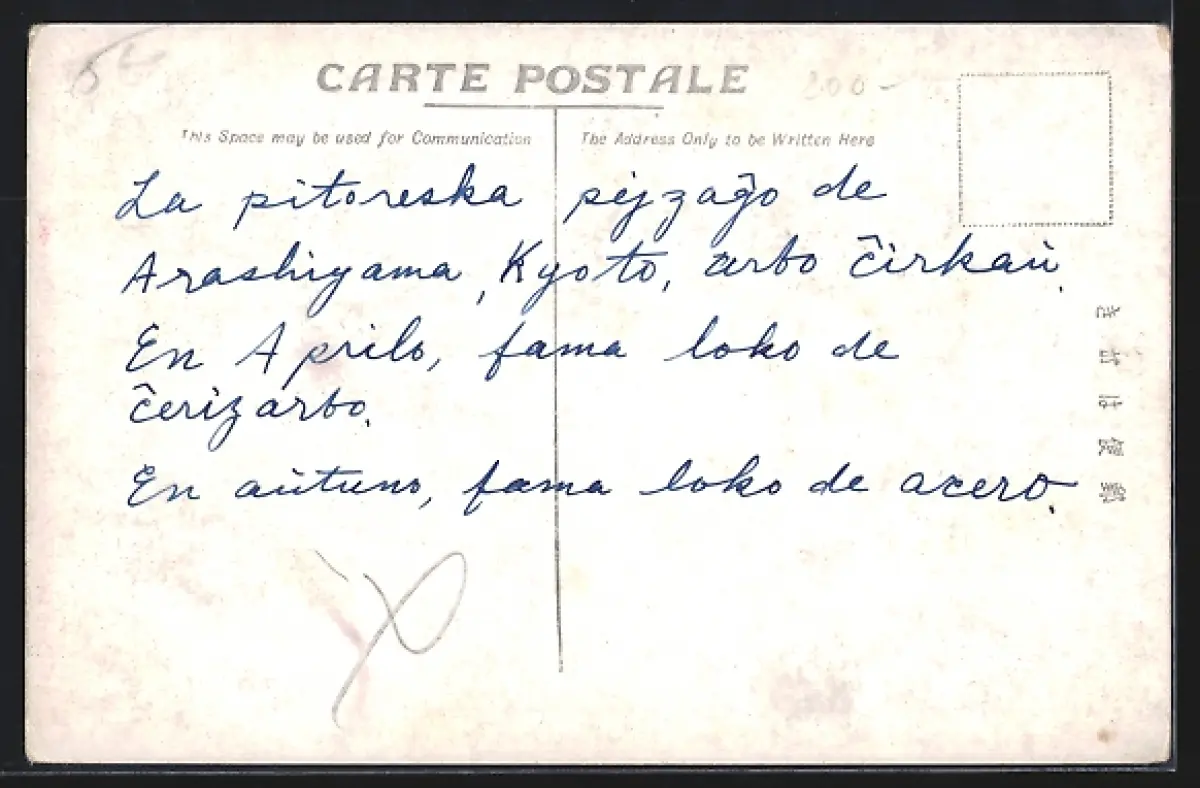 CARTE POSTALE
200-
This Space may be used for Communication
The Address Only to be Written Here
La pitoreska pejzaĝo de
Arashiyama, Kyoto, urbo ĉirkaŭ.
En Aprilo, fama loko de
ĉerizarbo.
En aŭtuno, fama loko de acero.